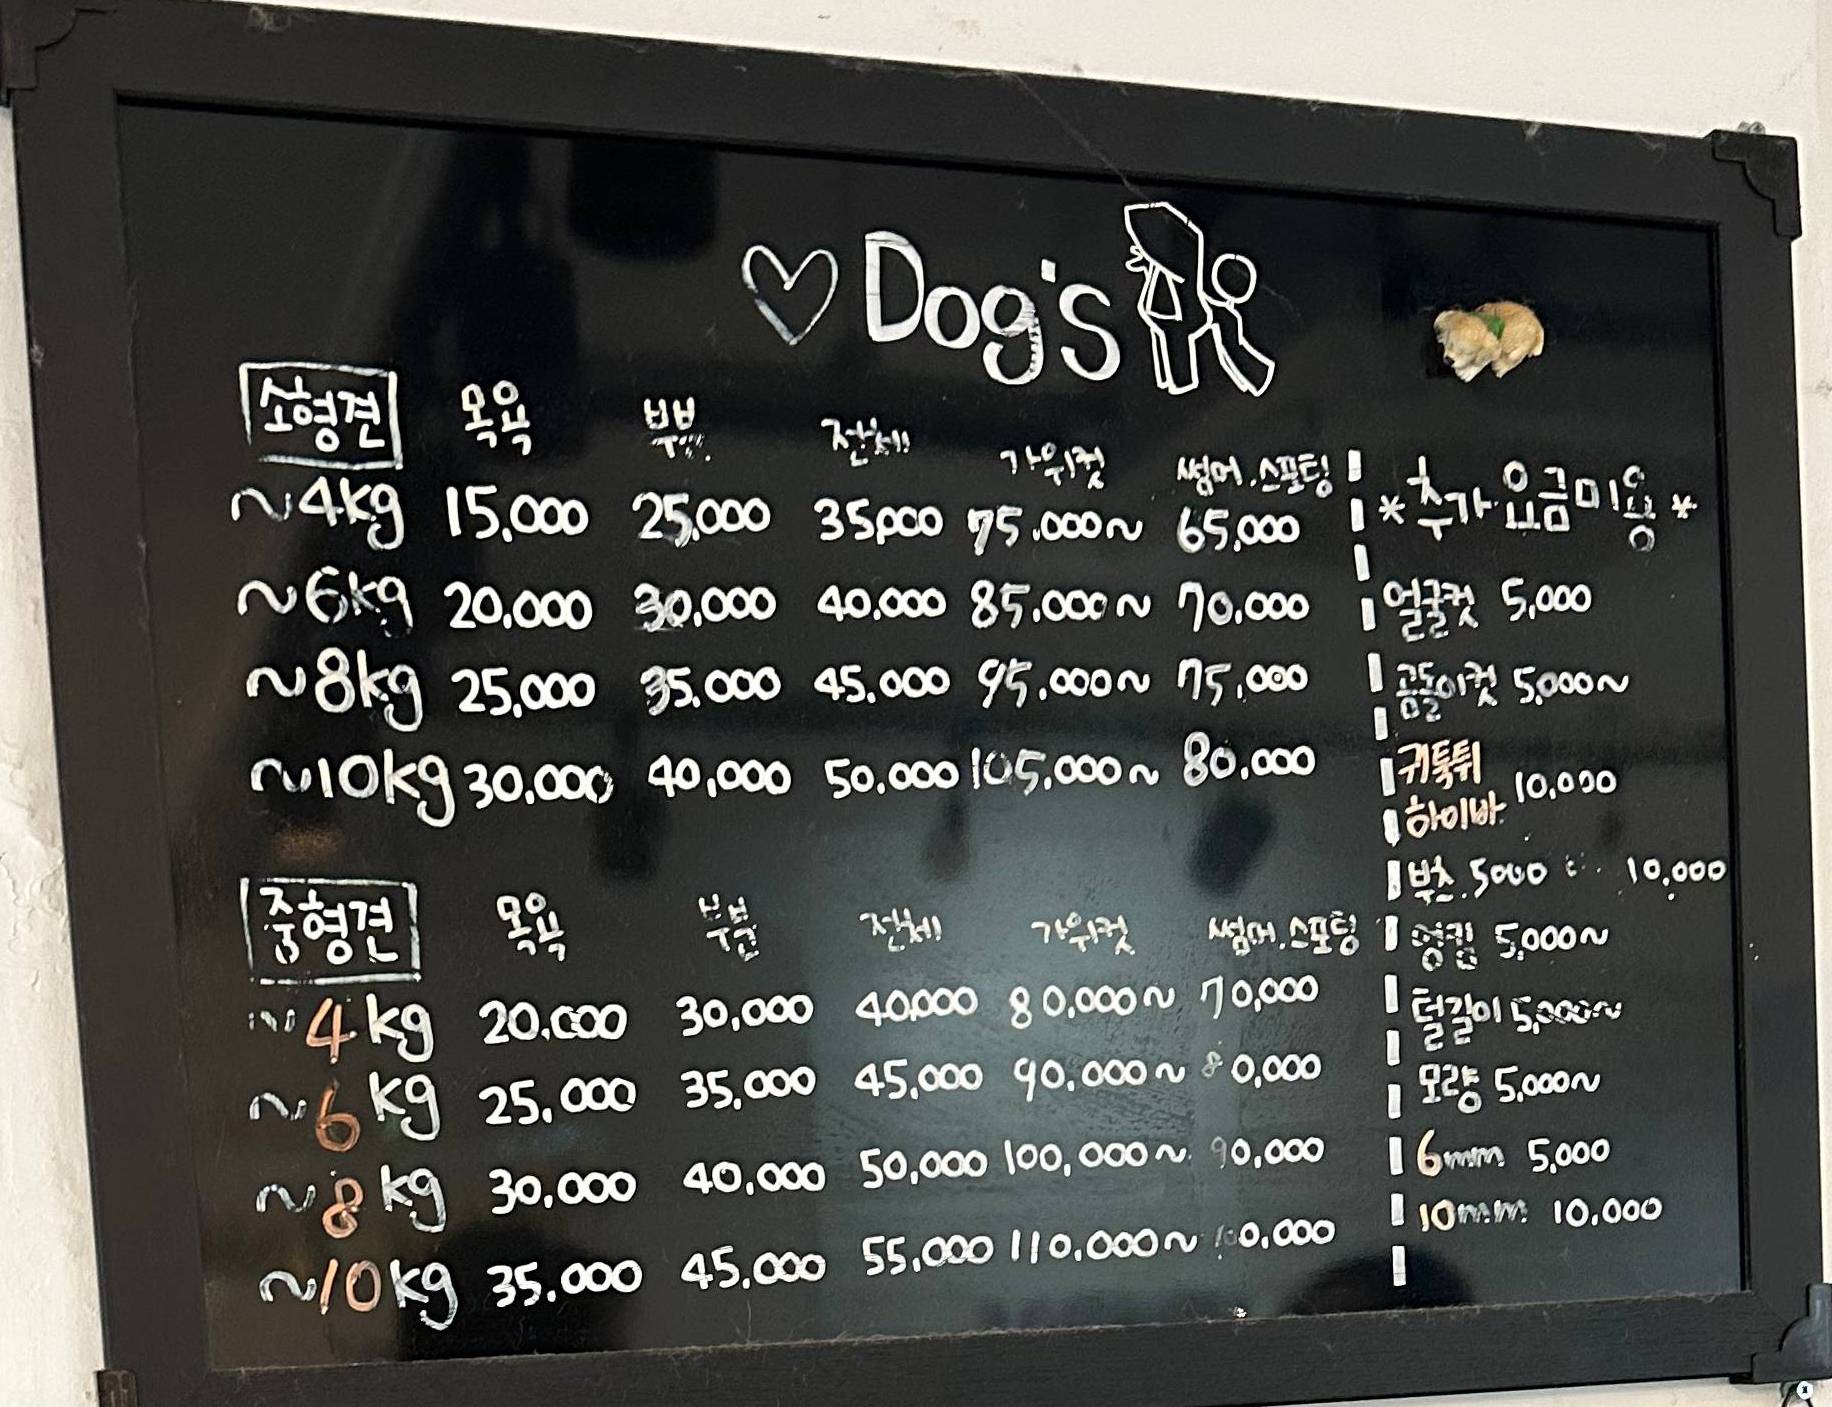 ♡ Dog's
소형견 목욕 부분 전체 가위컷 썸머.스포팅
~4kg 15,000 25,000 35,000 75,000~ 65,000
~6kg 20,000 30,000 40,000 85,000~ 70,000
~8kg 25,000 35,000 45,000 95,000~ 75,000
~10kg 30,000 40,000 50,000 105,000~ 80,000
중형견 목욕 부분 전체 가위컷 썸머.스포팅
~4kg 20,000 30,000 40,000 80,000~ 70,000
~6kg 25,000 35,000 45,000 90,000~ 80,000
~8kg 30,000 40,000 50,000 100,000~ 90,000
~10kg 35,000 45,000 55,000 110,000~ 100,000
*추가요금미용*
얼굴컷 5,000
곰돌이컷 5,000~
귀툭튀
하이바 10,000
부츠 5000 10,000
엉킴 5,000~
털길이 5,000~
모량 5,000~
6mm 5,000
10mm 10,000